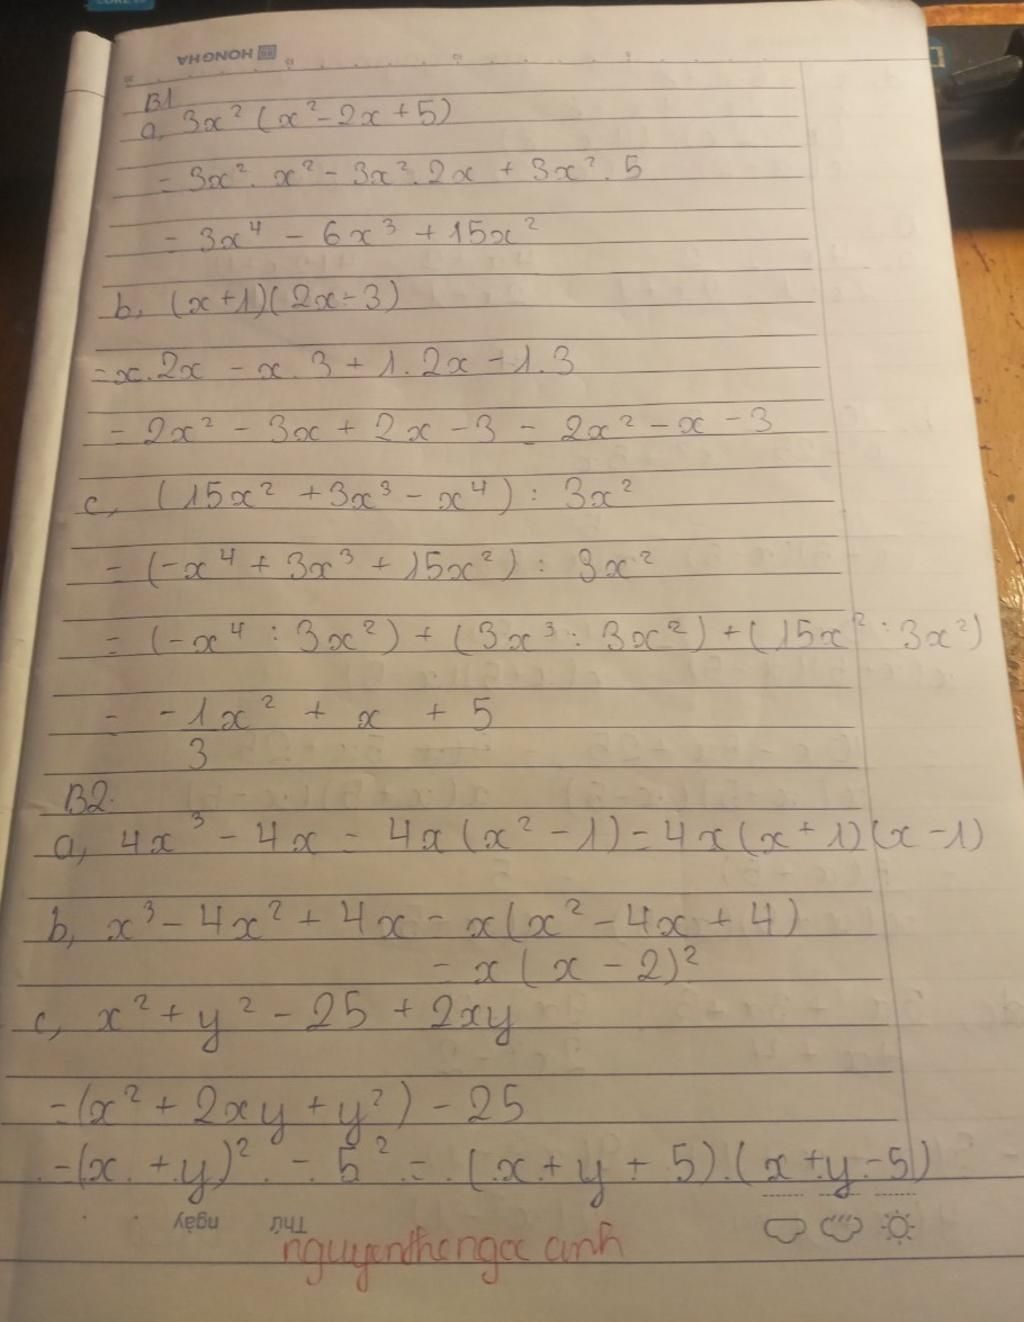 HONGHA
B1
a, 3x² (x² - 2x + 5)
= 3x². x² - 3x². 2x + 3x². 5
= 3x⁴ - 6x³ + 15x²
b, (x+1)(2x-3)
= x.2x - x.3 + 1.2x - 1.3
= 2x² - 3x + 2x - 3 = 2x² - x - 3
c, (15x² + 3x³ - x⁴) : 3x²
= (-x⁴ + 3x³ + 15x²) : 3x²
= (-x⁴ : 3x²) + (3x³ : 3x²) + (15x² : 3x²)
= -1/3 x² + x + 5
B2.
a, 4x³ - 4x = 4x(x² - 1) = 4x(x+1)(x-1)
b, x³ - 4x² + 4x = x(x² - 4x + 4)
= x(x - 2)²
c, x² + y² - 25 + 2xy
= (x² + 2xy + y²) - 25
= (x + y)² - 5² = (x + y + 5).(x + y - 5)
ngày Thứ
nguyenthengoc anh